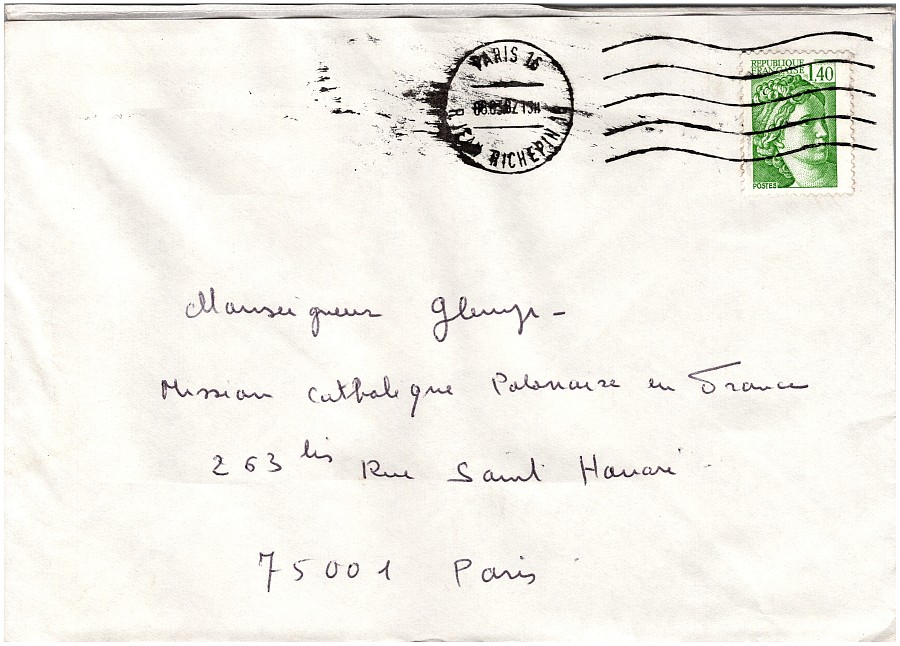 PARIS 16
R. JEAN RICHEPIN
REPUBLIQUE
FRANÇAISE 1,40
POSTES
Monseigneur Glemp -
Mission Catholique Polonaise en France
263 bis Rue Saint Honoré
75001 Paris